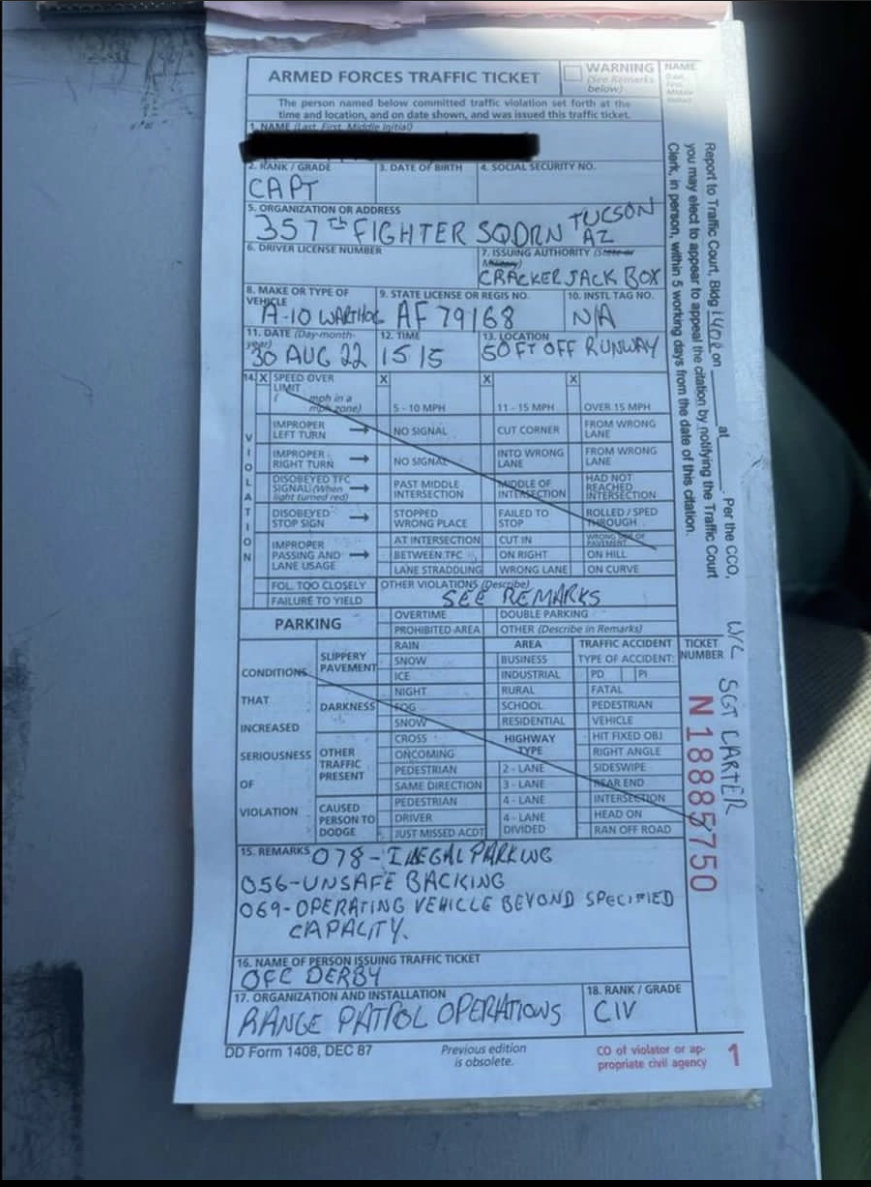 ARMED FORCES TRAFFIC TICKET
WARNING
(See Remarks
below)
The person named below committed traffic violation set forth at the
time and location, and on date shown, and was issued this traffic ticket.
1. NAME (Last, First, Middle Initial)
2. RANK / GRADE
3. DATE OF BIRTH
4. SOCIAL SECURITY NO.
CAPT
5. ORGANIZATION OR ADDRESS
357th FIGHTER SQDRN TUCSON
AZ
6. DRIVER LICENSE NUMBER
7. ISSUING AUTHORITY (State or
Military)
CRACKER JACK BOX
8. MAKE OR TYPE OF
VEHICLE
9. STATE LICENSE OR REGIS NO.
10. INSTL TAG NO.
A-10 WARTHOG
AF 79168
N/A
11. DATE (Day-month-
year)
12. TIME
13. LOCATION
30 AUG 22
1515
50 FT OFF RUNWAY
14.
VIOLATION
X SPEED OVER
LIMIT
( mph in a
mph zone)
X 5 - 10 MPH
X 11 - 15 MPH
X OVER 15 MPH
IMPROPER
LEFT TURN
NO SIGNAL
CUT CORNER
FROM WRONG
LANE
IMPROPER
RIGHT TURN
NO SIGNAL
INTO WRONG
LANE
FROM WRONG
LANE
DISOBEYED TFC
SIGNAL (When
light turned red)
PAST MIDDLE
INTERSECTION
MIDDLE OF
INTERSECTION
HAD NOT
REACHED
INTERSECTION
DISOBEYED
STOP SIGN
STOPPED
WRONG PLACE
FAILED TO
STOP
ROLLED / SPED
THROUGH
IMPROPER
PASSING AND
LANE USAGE
AT INTERSECTION
CUT IN
WRONG SIDE OF
PAVEMENT
BETWEEN TFC
ON RIGHT
ON HILL
LANE STRADDLING
WRONG LANE
ON CURVE
FOL. TOO CLOSELY
FAILURE TO YIELD
OTHER VIOLATIONS (Describe)
SEE REMARKS
PARKING
OVERTIME
DOUBLE PARKING
PROHIBITED AREA
OTHER (Describe in Remarks)
CONDITIONS
THAT
INCREASED
SERIOUSNESS
OF
VIOLATION
SLIPPERY
PAVEMENT
RAIN
SNOW
ICE
DARKNESS
NIGHT
FOG
SNOW
OTHER
TRAFFIC
PRESENT
CROSS
ONCOMING
PEDESTRIAN
SAME DIRECTION
CAUSED
PERSON TO
DODGE
PEDESTRIAN
DRIVER
JUST MISSED ACDT
AREA
BUSINESS
INDUSTRIAL
RURAL
SCHOOL
RESIDENTIAL
HIGHWAY
TYPE
2 - LANE
3 - LANE
4 - LANE
4 - LANE
DIVIDED
TRAFFIC ACCIDENT
TYPE OF ACCIDENT:
PD
PI
FATAL
PEDESTRIAN
VEHICLE
HIT FIXED OBJ
RIGHT ANGLE
SIDESWIPE
REAR END
INTERSECTION
HEAD ON
RAN OFF ROAD
15. REMARKS
078 - ILLEGAL PARKING
056 - UNSAFE BACKING
069 - OPERATING VEHICLE BEYOND SPECIFIED
CAPACITY.
16. NAME OF PERSON ISSUING TRAFFIC TICKET
OFC DERBY
17. ORGANIZATION AND INSTALLATION
18. RANK / GRADE
RANGE PATROL OPERATIONS
CIV
DD Form 1408, DEC 87
Previous edition
is obsolete.
CO of violator or ap-
propriate civil agency
1
NAME
Report to Traffic Court, Bldg 1402 on ____ at ____. Per the CCO,
you may elect to appear to appeal the citation by notifying the Traffic Court
Clerk, in person, within 5 working days from the date of this citation.
W/C SGT CARTER
TICKET
NUMBER
N 18885750